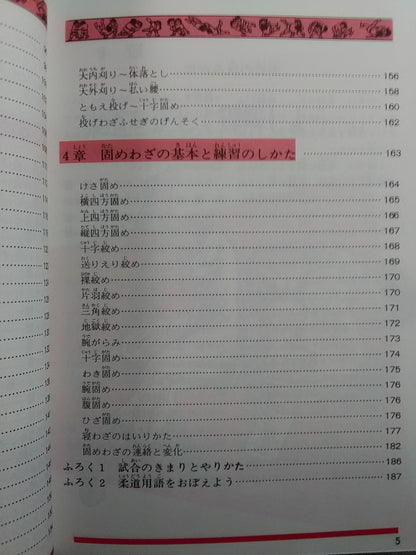 大内刈り〜体落とし……156
大外刈り〜払い腰……158
ともえ投げ〜十字固め……160
投げわざふせぎのげんそく……162
4章 固めわざの基本と練習のしかた……163
けさ固め……164
横四方固め……165
上四方固め……166
縦四方固め……167
十字絞め……168
送りえり絞め……169
裸絞め……170
片羽絞め……170
三角絞め……171
地獄絞め……172
腕がらみ……173
十字固め……174
わき固め……175
腕固め……175
腹固め……176
ひざ固め……176
寝わざのはいりかた……177
固めわざの連絡と変化……182
ふろく1 試合のきまりとやりかた……186
ふろく2 柔道用語をおぼえよう……187
5